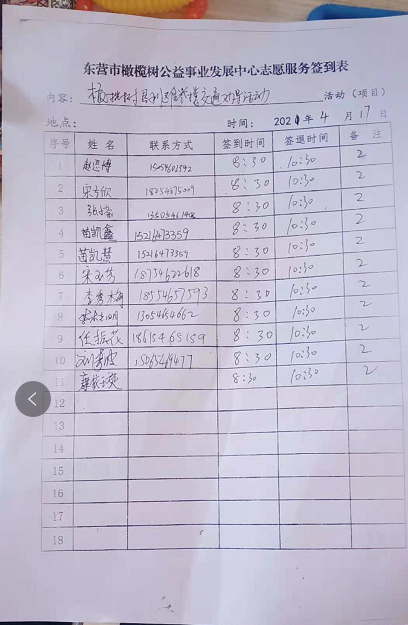 东营市橄榄树公益事业发展中心志愿服务签到表
内容： 活动（项目）
地点： 时间：2021年4月17日
序号 姓名 联系方式 签到时间 签退时间 备注
1 8:30 10:30 2
2 18254675009 8:30 10:30 2
3 8:30 10:30 2
4 苗凯鑫 15216473359 8:30 10:30 2
5 苗凯慧 15216473359 8:30 10:30 2
6 宋玉芳 18754622618 8:30 10:30 2
7 李秀梅 18554657593 8:30 10:30 2
8 13054654662 8:30 10:30 2
9 任振花 18615465159 8:30 10:30 2
10 15065469477 8:30 10:30 2
11 8:30 10:30 2
12
13
14
15
16
17
18